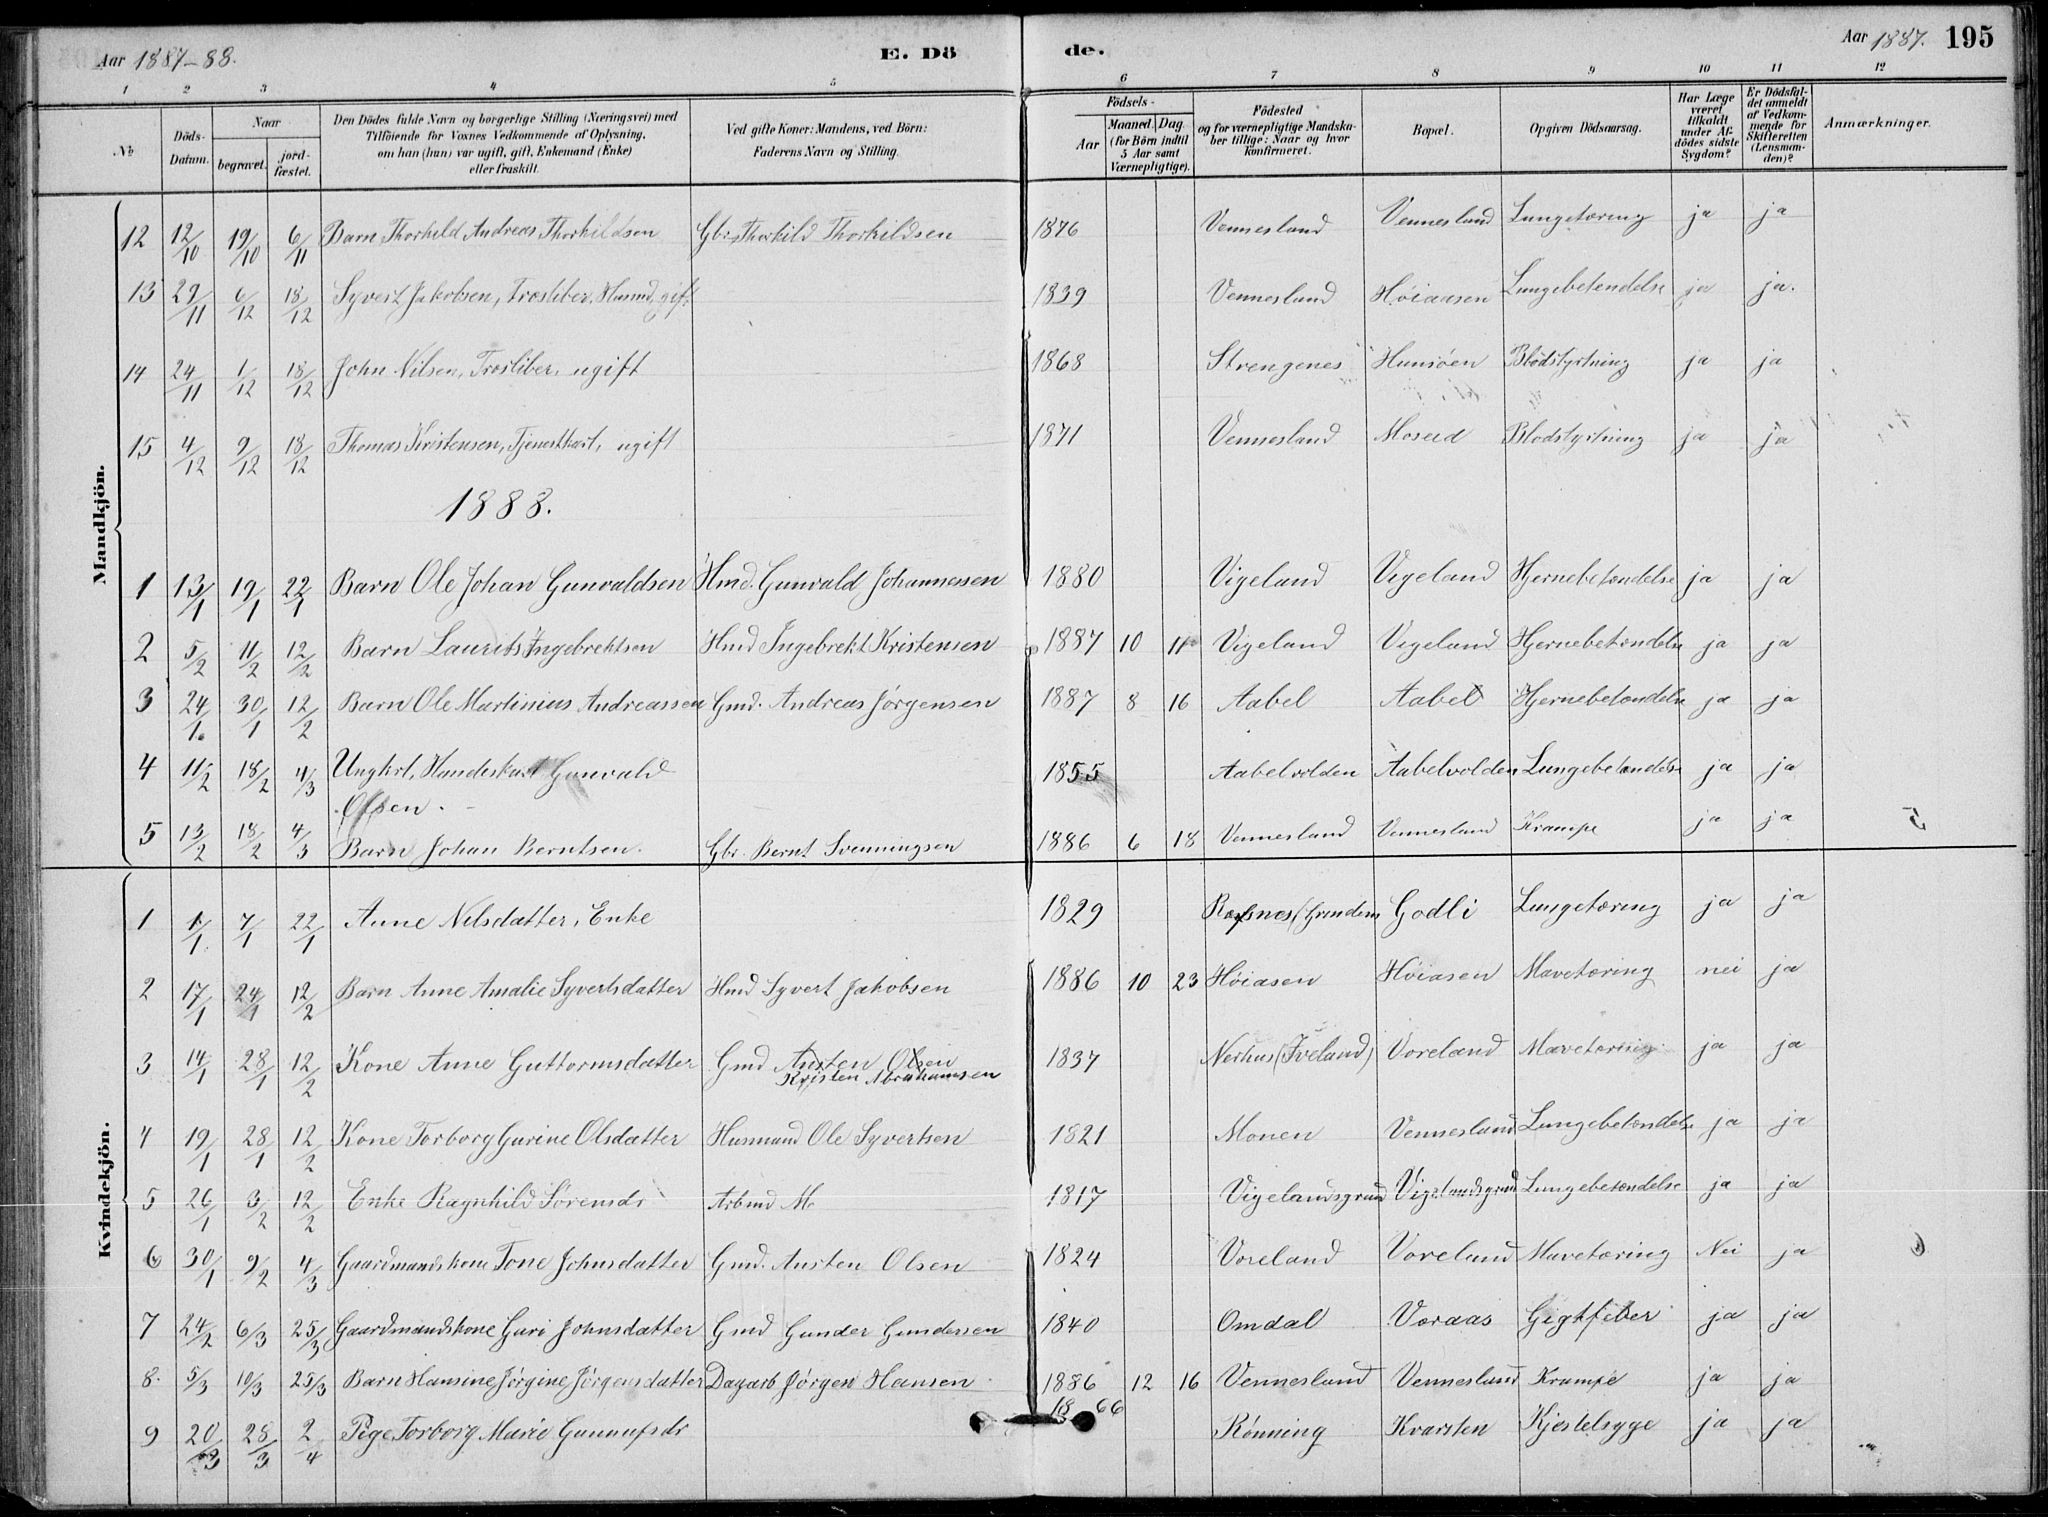 Aar 1887-88.
E. Döde.
Aar 1887. 195
1 2 3 4 5 6 7 8 9 10 11 12
No
Döds-Datum.
Naar
begravet.
jord-fæstet.
Den Dödes fulde Navn og borgerlige Stilling (Næringsvei) med
Tilföiende for Voxnes Vedkommende af Oplysning,
om han (hun) var ugift, gift, Enkemand (Enke)
eller fraskilt.
Ved gifte Koner: Mandens, ved Börn:
Faderens Navn og Stilling.
Födsels-
Aar
Maaned. Dag.
(for Börn indtil
5 Aar samt
Værnepligtige).
Födested
og for værnepligtige Mandska-
ber tillige: Naar og hvor
konfirmeret.
Bopæl.
Opgiven Dödsaarsag.
Har Læge
været
tilkaldt
under Af-
dödes sidste
Sygdom?
Er Dödsfal-
det anmeldt
af Vedkom-
mende for
Skifteretten
(Lensman-
den)?
Anmærkninger.
Mandkjön.
12 12/10 19/10 6/11 Barn Thorkild Andreas Thorkildsen Gbr. Thorkild Thorkildsen 1876 Vennesland Vennesland Lungetæring ja ja
13 29/11 6/12 18/12 Syvert Jakobsen, Træsliber, Husmd, gift. 1839 Vennesland Høiaasen Lungebetendelse ja ja.
14 24/11 1/12 18/12 John Nilsen, Træsliber, ugift 1868 Strengenes Hunsøen Blodstyrtning ja ja
15 4/12 9/12 18/12 Thomas Kristensen, Tjenestkarl, ugift 1871 Vennesland Moseid Blodstyrtning ja ja
1888.
1 13/1 19/1 22/1 Barn Ole Johan Gunvaldsen Hmd. Gunvald Johannessen 1880 Vigeland Vigeland Hjernebetændelse ja ja
2 5/2 11/2 12/2 Barn Laurits Ingebrektsen Hmd Ingebrekt Kristensen 1887 10 11 Vigeland Vigeland Hjernebetændelse ja ja
3 24/1 30/1 12/2 Barn Ole Martinius Andreassen Gmd. Andreas Jørgensen 1887 8 16 Aabel Aabel Hjernebetændelse ja ja
4 11/2 18/2 4/3 Ungkrl, Handelskarl Gunvald
Olsen. 1855 Aabelvolden Aabelvolden Lungebetændelse ja ja
5 13/2 18/2 4/3 Barn Johan Berntsen. Gbr. Bernt Svenningsen 1886 6 18 Vennesland Vennesland Krampe ja ja
Kvindekjön.
1 1/1 7/1 22/1 Anne Nilsdatter, Enke 1829 Godli Lungetæring ja ja
2 17/1 24/1 12/2 Barn Anne Amalie Syvertsdatter Hmd Syvert Jakobsen 1886 10 23 Høiasen Høiasen Mavetæring nei ja
3 14/1 28/1 12/2 Kone Anne Guttormsdatter Gmd Austen Olsen
Kristen Abrahamsen 1837 Nerhus (Iveland) Voreland Mavetæring ja ja
4 19/1 28/1 12/2 Kone Torborg Gurine Olsdatter Husmand Ole Syvertsen 1821 Monen Vennesland Lungebetændelse ja ja
5 26/1 3/2 12/2 Enke Ragnhild Sørensdr Arbmd M 1817 Vigelandsgrund Vigelandsgrund Lungebetændelse ja ja
6 30/1 9/2 4/3 Gaardmandskone Tone Johnsdatter Gmd. Austen Olsen 1824 Voreland Voreland Mavetæring Nei ja
7 24/2 6/3 25/3 Gaardmandskone Guri Johnsdatter Gmd Gunder Gundersen 1840 Omdal Voraas Gigtfeber ja ja
8. 5/3 10/3 25/3 Barn Hansine Jørgine Jørgensdatter Dagarb Jörgen Hansen 1886 12 16 Vennesland Vennesland Krampe ja ja
9 20/3 28/3 2/4 Pige Torborg Marie Gunnufsdr 1866 Rønning Kvarsten Kjertelsyge ja ja